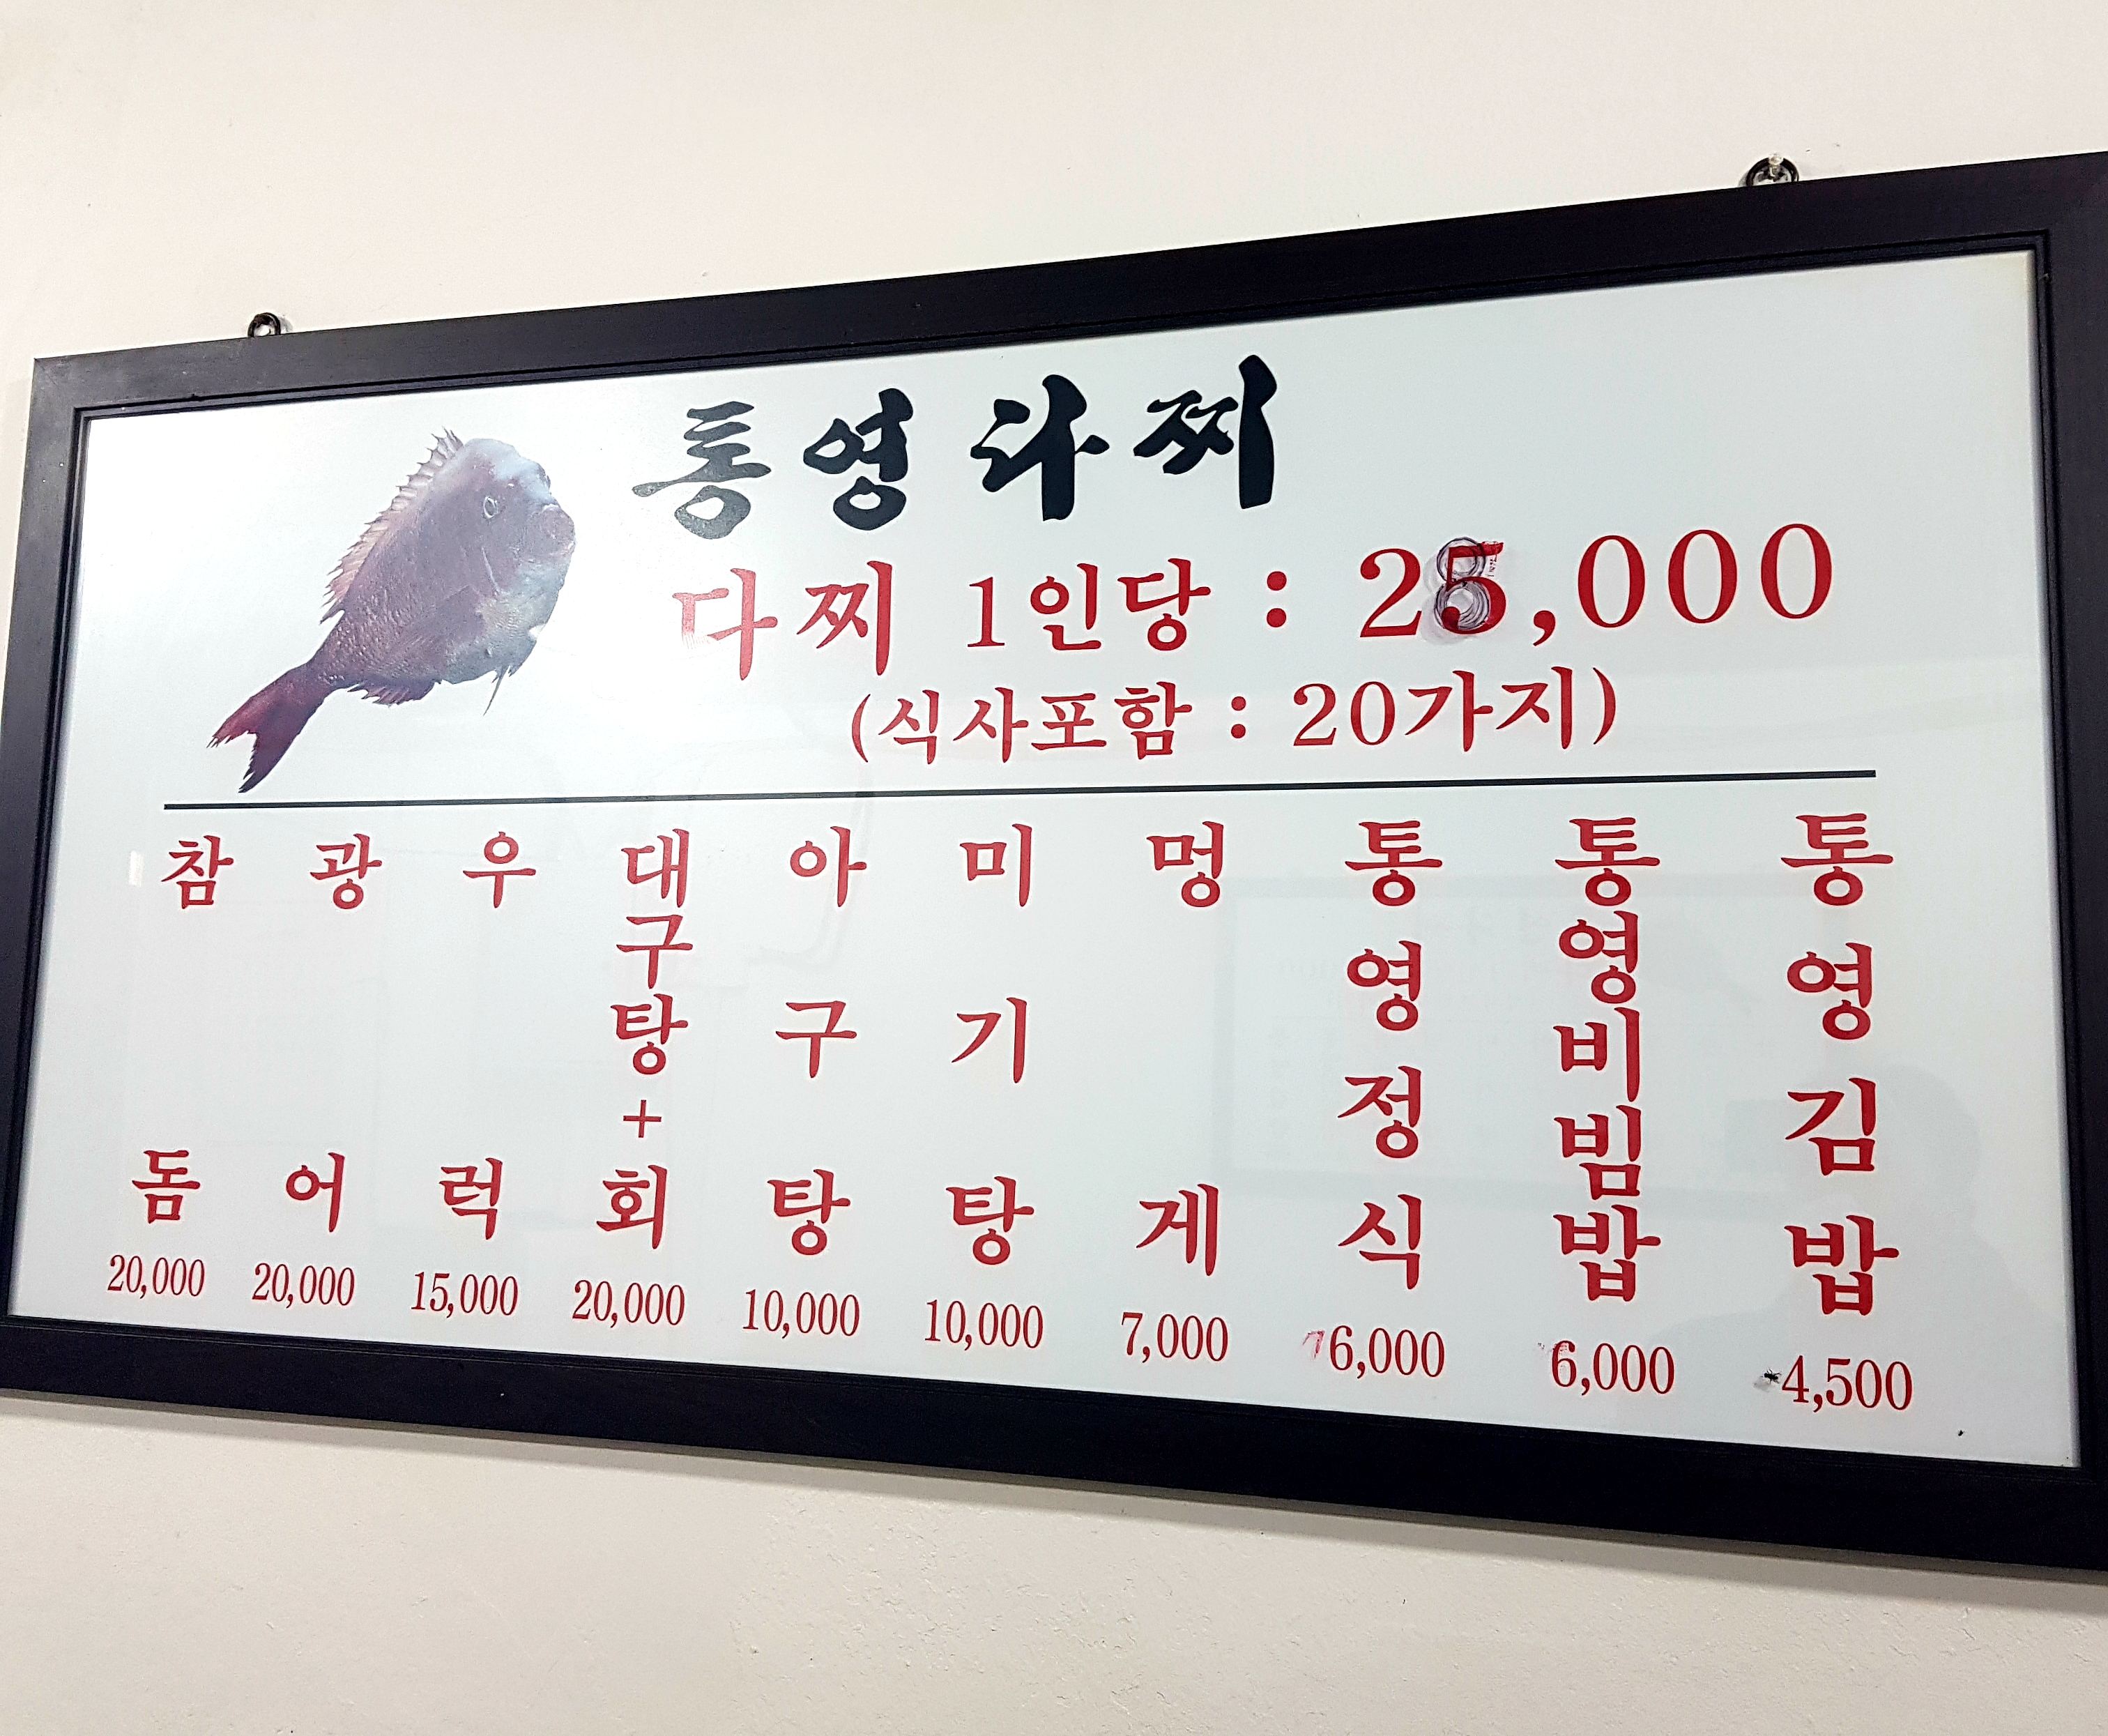 통영다찌
다찌 1인당 : 28,000
(식사포함 : 20가지)
참돔 20,000
광어 20,000
우럭 15,000
대구탕+회 20,000
아구탕 10,000
미기탕 10,000
멍게 7,000
통영정식 6,000
통영비빔밥 6,000
통영김밥 4,500